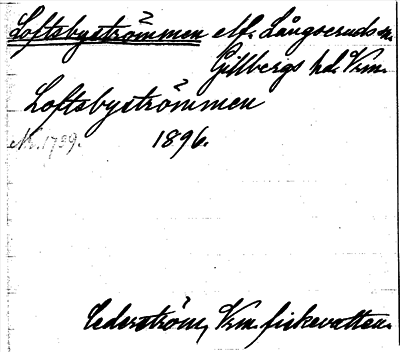 Loftsbyströmmen elf. Långseruds sn.
Gillbergs hd. Vrm.
Loftsbyströmmen
Nr. 1759. 1896.
Cederström, Vrm. fiskevatten.